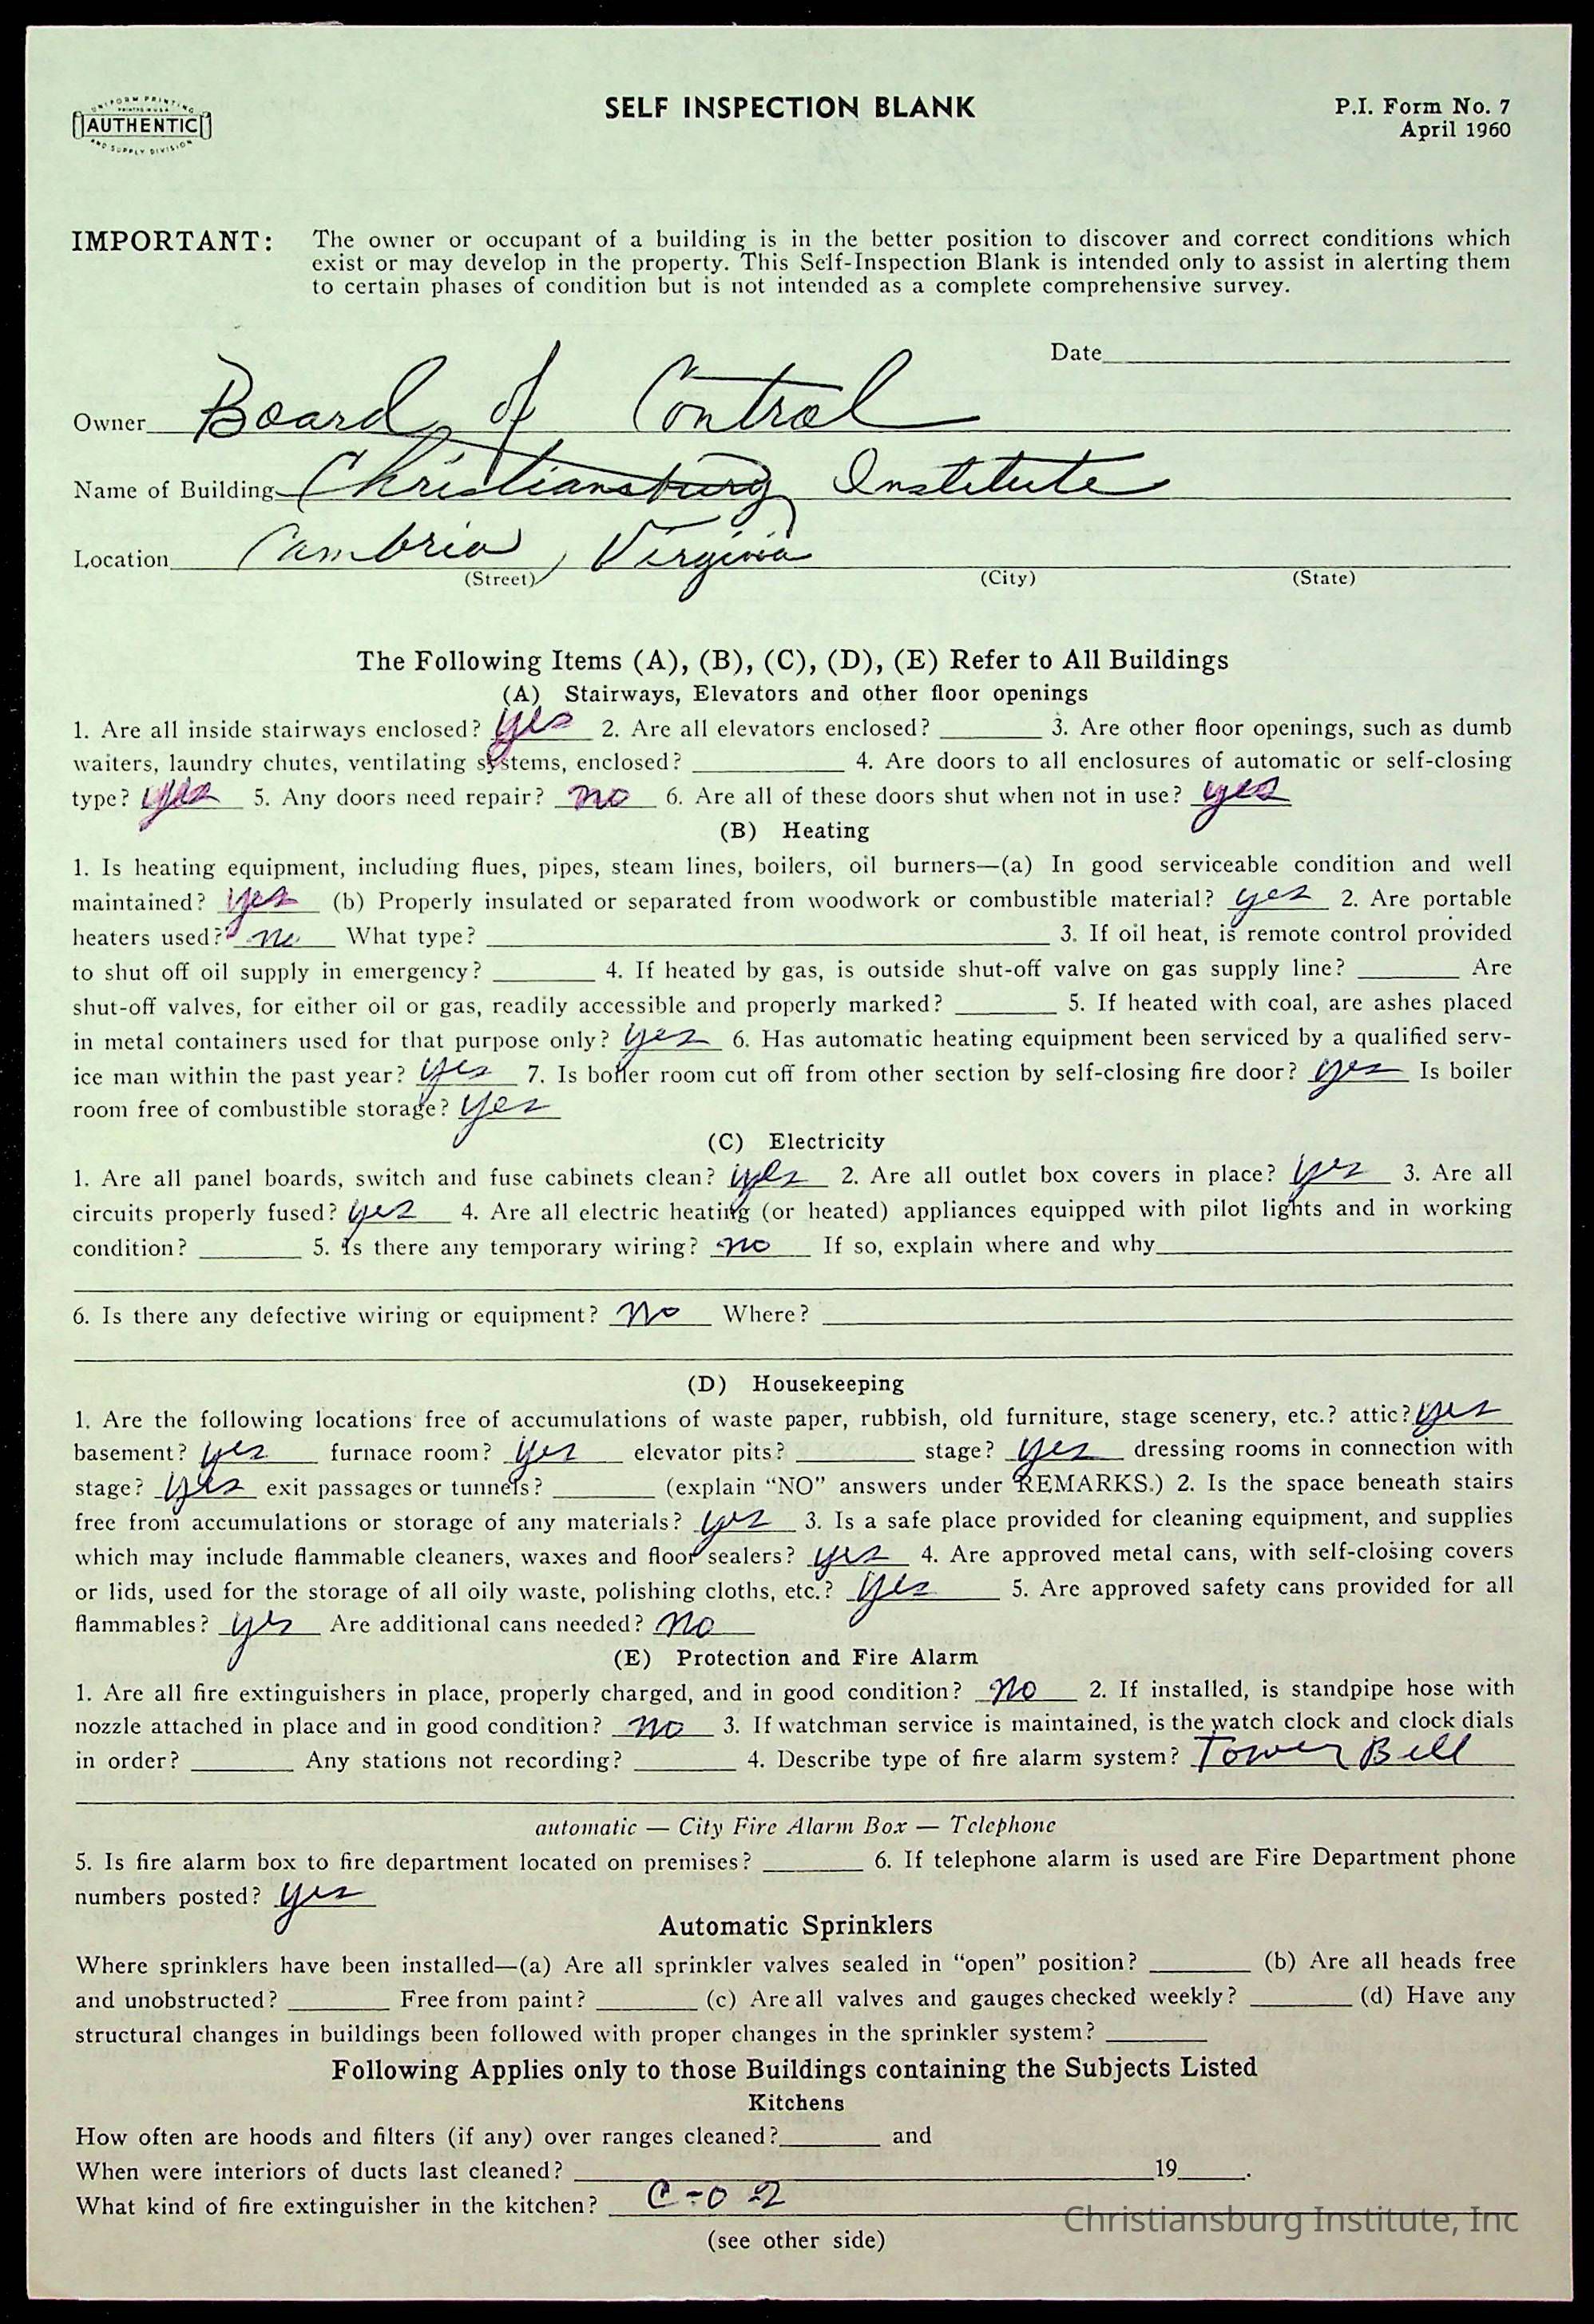 UNIFORM PRINTING
PRINTED IN U.S.A.
AUTHENTIC
AND SUPPLY DIVISION
SELF INSPECTION BLANK
P.I. Form No. 7
April 1960
IMPORTANT: The owner or occupant of a building is in the better position to discover and correct conditions which
exist or may develop in the property. This Self-Inspection Blank is intended only to assist in alerting them
to certain phases of condition but is not intended as a complete comprehensive survey.
Date
Owner Board of Control
Name of Building Christiansburg Institute
Location Cambria, Virginia
(Street) (City) (State)
The Following Items (A), (B), (C), (D), (E) Refer to All Buildings
(A) Stairways, Elevators and other floor openings
1. Are all inside stairways enclosed? yes 2. Are all elevators enclosed? ______ 3. Are other floor openings, such as dumb
waiters, laundry chutes, ventilating systems, enclosed? ______ 4. Are doors to all enclosures of automatic or self-closing
type? yes 5. Any doors need repair? no 6. Are all of these doors shut when not in use? yes
(B) Heating
1. Is heating equipment, including flues, pipes, steam lines, boilers, oil burners—(a) In good serviceable condition and well
maintained? yes (b) Properly insulated or separated from woodwork or combustible material? yes 2. Are portable
heaters used? no What type? ______ 3. If oil heat, is remote control provided
to shut off oil supply in emergency? ______ 4. If heated by gas, is outside shut-off valve on gas supply line? ______ Are
shut-off valves, for either oil or gas, readily accessible and properly marked? ______ 5. If heated with coal, are ashes placed
in metal containers used for that purpose only? yes 6. Has automatic heating equipment been serviced by a qualified serv-
ice man within the past year? yes 7. Is boiler room cut off from other section by self-closing fire door? yes Is boiler
room free of combustible storage? yes
(C) Electricity
1. Are all panel boards, switch and fuse cabinets clean? yes 2. Are all outlet box covers in place? yes 3. Are all
circuits properly fused? yes 4. Are all electric heating (or heated) appliances equipped with pilot lights and in working
condition? ______ 5. Is there any temporary wiring? no If so, explain where and why
6. Is there any defective wiring or equipment? No Where?
(D) Housekeeping
1. Are the following locations free of accumulations of waste paper, rubbish, old furniture, stage scenery, etc.? attic? yes
basement? yes furnace room? yes elevator pits? ______ stage? yes dressing rooms in connection with
stage? yes exit passages or tunnels? ______ (explain “NO” answers under REMARKS.) 2. Is the space beneath stairs
free from accumulations or storage of any materials? yes 3. Is a safe place provided for cleaning equipment, and supplies
which may include flammable cleaners, waxes and floor sealers? yes 4. Are approved metal cans, with self-closing covers
or lids, used for the storage of all oily waste, polishing cloths, etc.? yes 5. Are approved safety cans provided for all
flammables? yes Are additional cans needed? no
(E) Protection and Fire Alarm
1. Are all fire extinguishers in place, properly charged, and in good condition? no 2. If installed, is standpipe hose with
nozzle attached in place and in good condition? no 3. If watchman service is maintained, is the watch clock and clock dials
in order? ______ Any stations not recording? ______ 4. Describe type of fire alarm system? Tower Bell
automatic — City Fire Alarm Box — Telephone
5. Is fire alarm box to fire department located on premises? ______ 6. If telephone alarm is used are Fire Department phone
numbers posted? yes
Automatic Sprinklers
Where sprinklers have been installed—(a) Are all sprinkler valves sealed in “open” position? ______ (b) Are all heads free
and unobstructed? ______ Free from paint? ______ (c) Are all valves and gauges checked weekly? ______ (d) Have any
structural changes in buildings been followed with proper changes in the sprinkler system? ______
Following Applies only to those Buildings containing the Subjects Listed
Kitchens
How often are hoods and filters (if any) over ranges cleaned? ______ and
When were interiors of ducts last cleaned? ______ 19____.
What kind of fire extinguisher in the kitchen? C-O 2
Christiansburg Institute, Inc
(see other side)